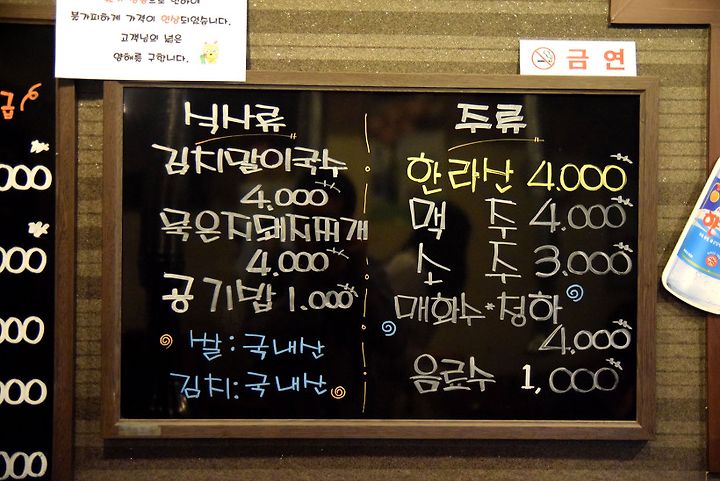 불가피하게 가격이 인상되었습니다.
고객님의 넓은
양해를 구합니다.
금연
식사류
김치말이국수
4.000
묵은지돼지찌개
4.000
공기밥 1.000
쌀:국내산
김치:국내산
주류
한라산 4.000
맥 주 4.000
소 주 3.000
매화수*청하
4.000
음료수 1,000